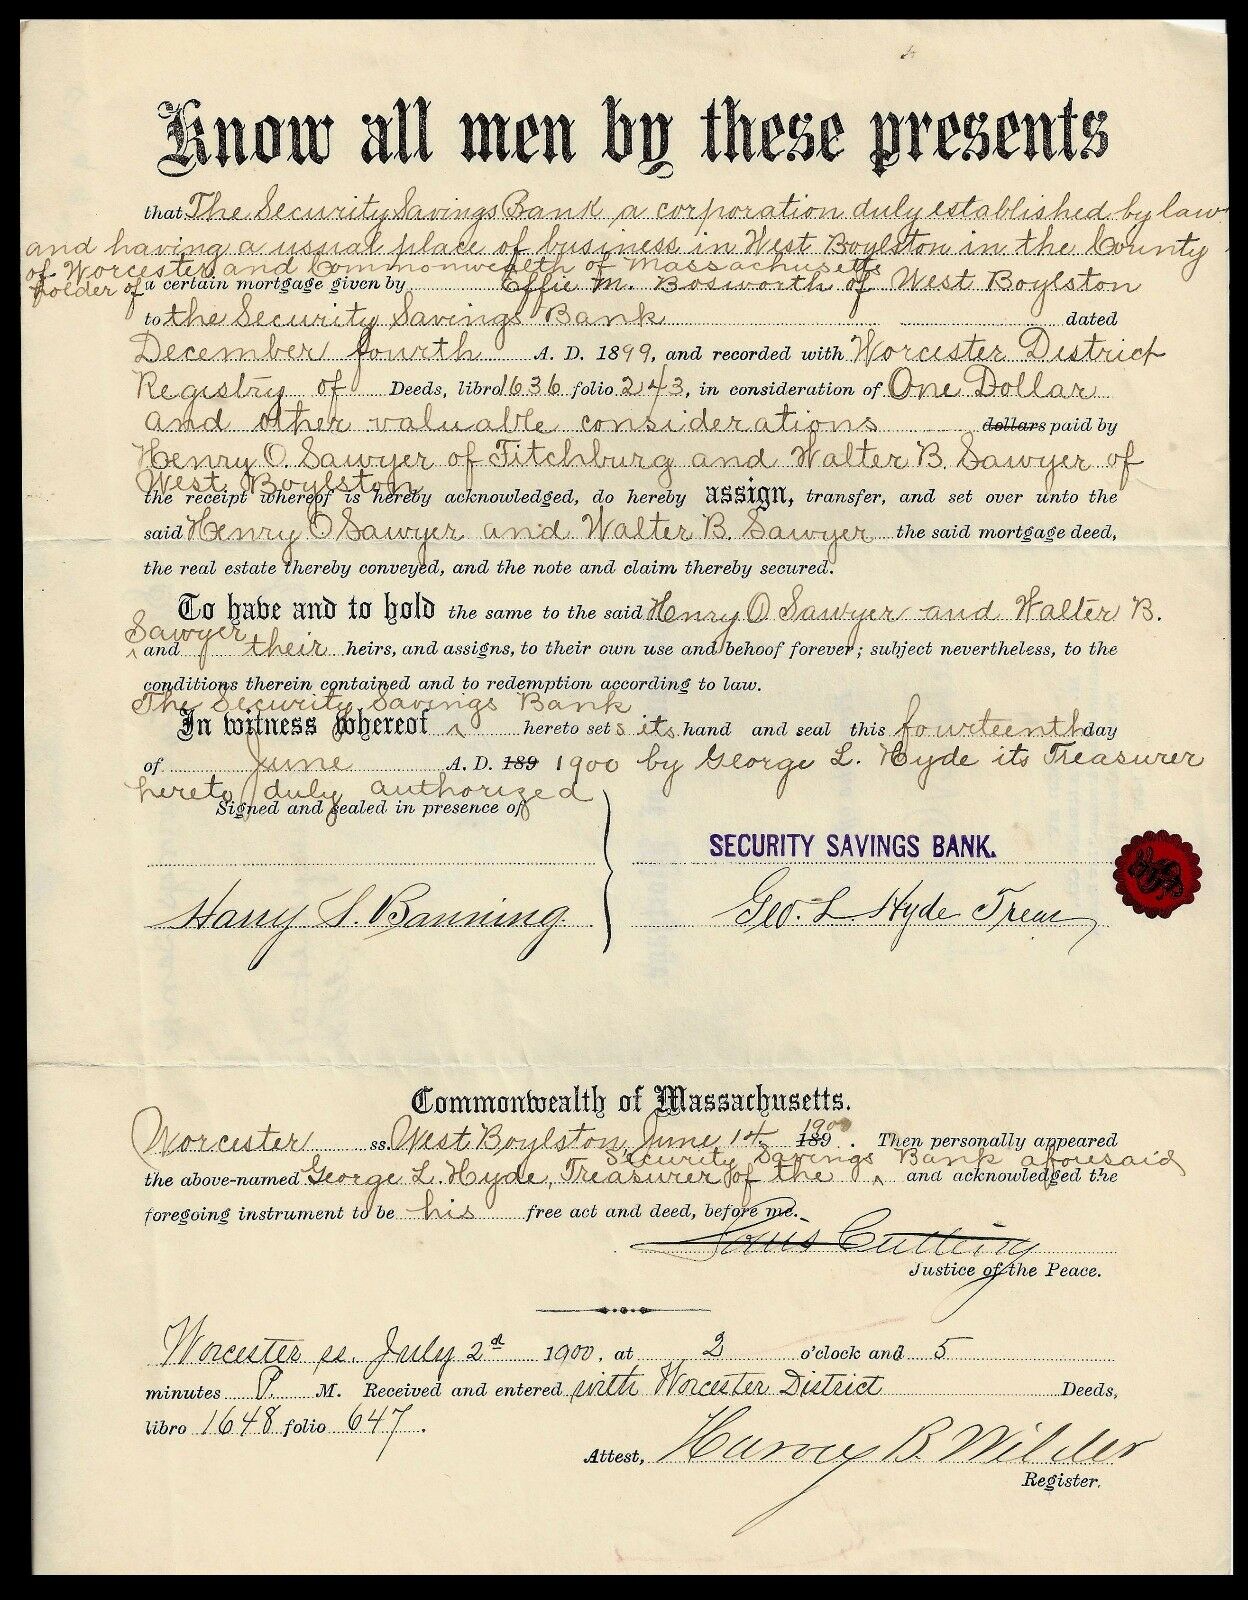 Know all men by these presents
that The Security Savings Bank a corporation duly established by law
and having a usual place of business in West Boylston in the County
of Worcester and Commonwealth of Massachusetts
holder of a certain mortgage given by Effie M. Bosworth of West Boylston
to the Security Savings Bank dated
December fourth A. D. 1899, and recorded with Worcester District
Registry of Deeds, libro 1636 folio 243, in consideration of One Dollar
and other valuable considerations dollars paid by
Henry O. Sawyer of Fitchburg and Walter B. Sawyer of
West Boylston
the receipt whereof is hereby acknowledged, do hereby assign, transfer, and set over unto the
said Henry O Sawyer and Walter B. Sawyer the said mortgage deed,
the real estate thereby conveyed, and the note and claim thereby secured.
To have and to hold the same to the said Henry O. Sawyer and Walter B.
Sawyer
and their heirs, and assigns, to their own use and behoof forever; subject nevertheless, to the
conditions therein contained and to redemption according to law.
The Security Savings Bank
In witness whereof hereto sets its hand and seal this fourteenth day
of June A. D. 189 1900 by George L. Hyde its Treasurer
hereto duly authorized
Signed and sealed in presence of
SECURITY SAVINGS BANK.
Harry S. Banning. Geo. L Hyde Treas
Commonwealth of Massachusetts.
1900
Worcester ss. West Boylston, June 14 189 . Then personally appeared
Security Savings Bank aforesaid
the above-named George L. Hyde, Treasurer of the and acknowledged the
foregoing instrument to be his free act and deed, before me.
Louis Cutting
Justice of the Peace.
Worcester ss. July 2d 1900, at 2 o'clock and 5
minutes P. M. Received and entered with Worcester District Deeds,
libro 1648 folio 647.
Attest, Harvey B. Wilder
Register.